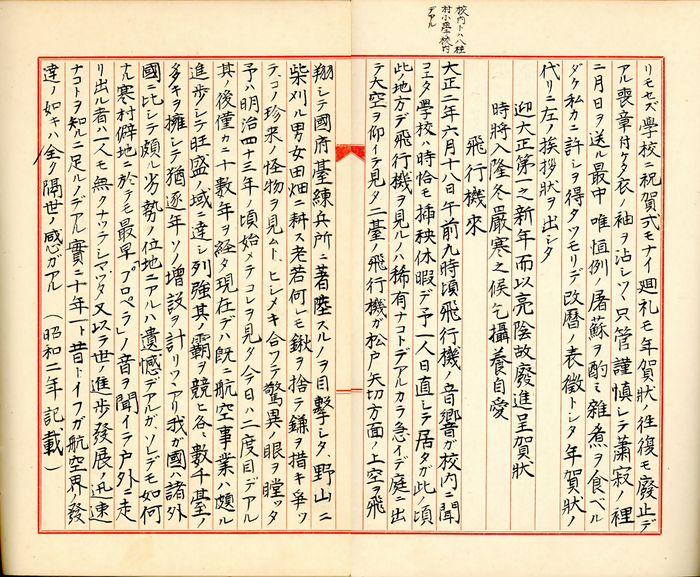 校内トハ八柱
村小學校内
デアル
リモセズ學校ニ祝賀式モナイ廻礼モ年賀状ノ往復モ廃止デ
アル喪章付ケタ衣ノ袖ヲ沾シツヽ只管謹慎シテ蕭寂ノ裡
ニ月日ヲ送ル最中唯恒例ノ屠蘇ヲ酌ミ雑煮ヲ食ベル
ダケ私カニ許シヲ得タツモリデ改暦ノ表徴トシタ年賀状ノ
代リニ左ノ挨拶状ヲ出シタ
迎大正第一之新年而以亮陰故廢進呈賀状
時將入隆冬嚴寒之候乞攝養自愛
飛行機來
大正二年六月十八日午前九時頃飛行機ノ音響ガ校内ニ聞
コエタ學校ハ時恰モ挿秧休暇デ予一人日直シテ居タガ此頃
此ノ地方デ飛行機ヲ見ルハ稀有ナコトデアルカラ急イデ庭ニ出
テ大空ヲ仰イデ見タ二臺ノ飛行機ガ松戸ノ矢切方面ノ上空ヲ飛
翔シテ國府臺練兵所ニ著陸スルノヲ目撃シタ、野山ニ
柴刈ル男女田畑ニ耕ス老若何レモ鍬ヲ捨テ鎌ヲ措キ爭ッ
テ、コノ珍来ノ怪物ヲ見ムト、ヒシメキ合ツテ驚異ノ眼ヲ瞠ッタ
予ハ明治四十三年ノ頃始メテコレヲ見タ今日ハ二度目デアル
其ノ後僅カニ十數年ヲ経タ現在デハ既ニ航空事業ハ頗ル
進歩シテ旺盛ノ域ニ達シ列強其ノ霸ヲ競ヒ各〻數千臺ノ
多キヲ擁シテ猶逐年ソノ増設ヲ計リツヽアリ我ガ國ハ諸外
國ニ比シテ頗ル劣勢ノ位地ニアルハ遺憾デアルガソレデモ如何
ナル寒村僻地ニ於テモ最早「プロペラ」ノ音ヲ聞イテ戸外ニ走
リ出ル者ハ一人モ無クナツテシマッタ又以テ世ノ進歩發展ノ迅速
ナコトヲ知ルニ足ルノデアル實ニ十年一ト昔トイフガ航空界ノ發
達ノ如キハ全ク隔世ノ感ガアル　（昭和二年記載）